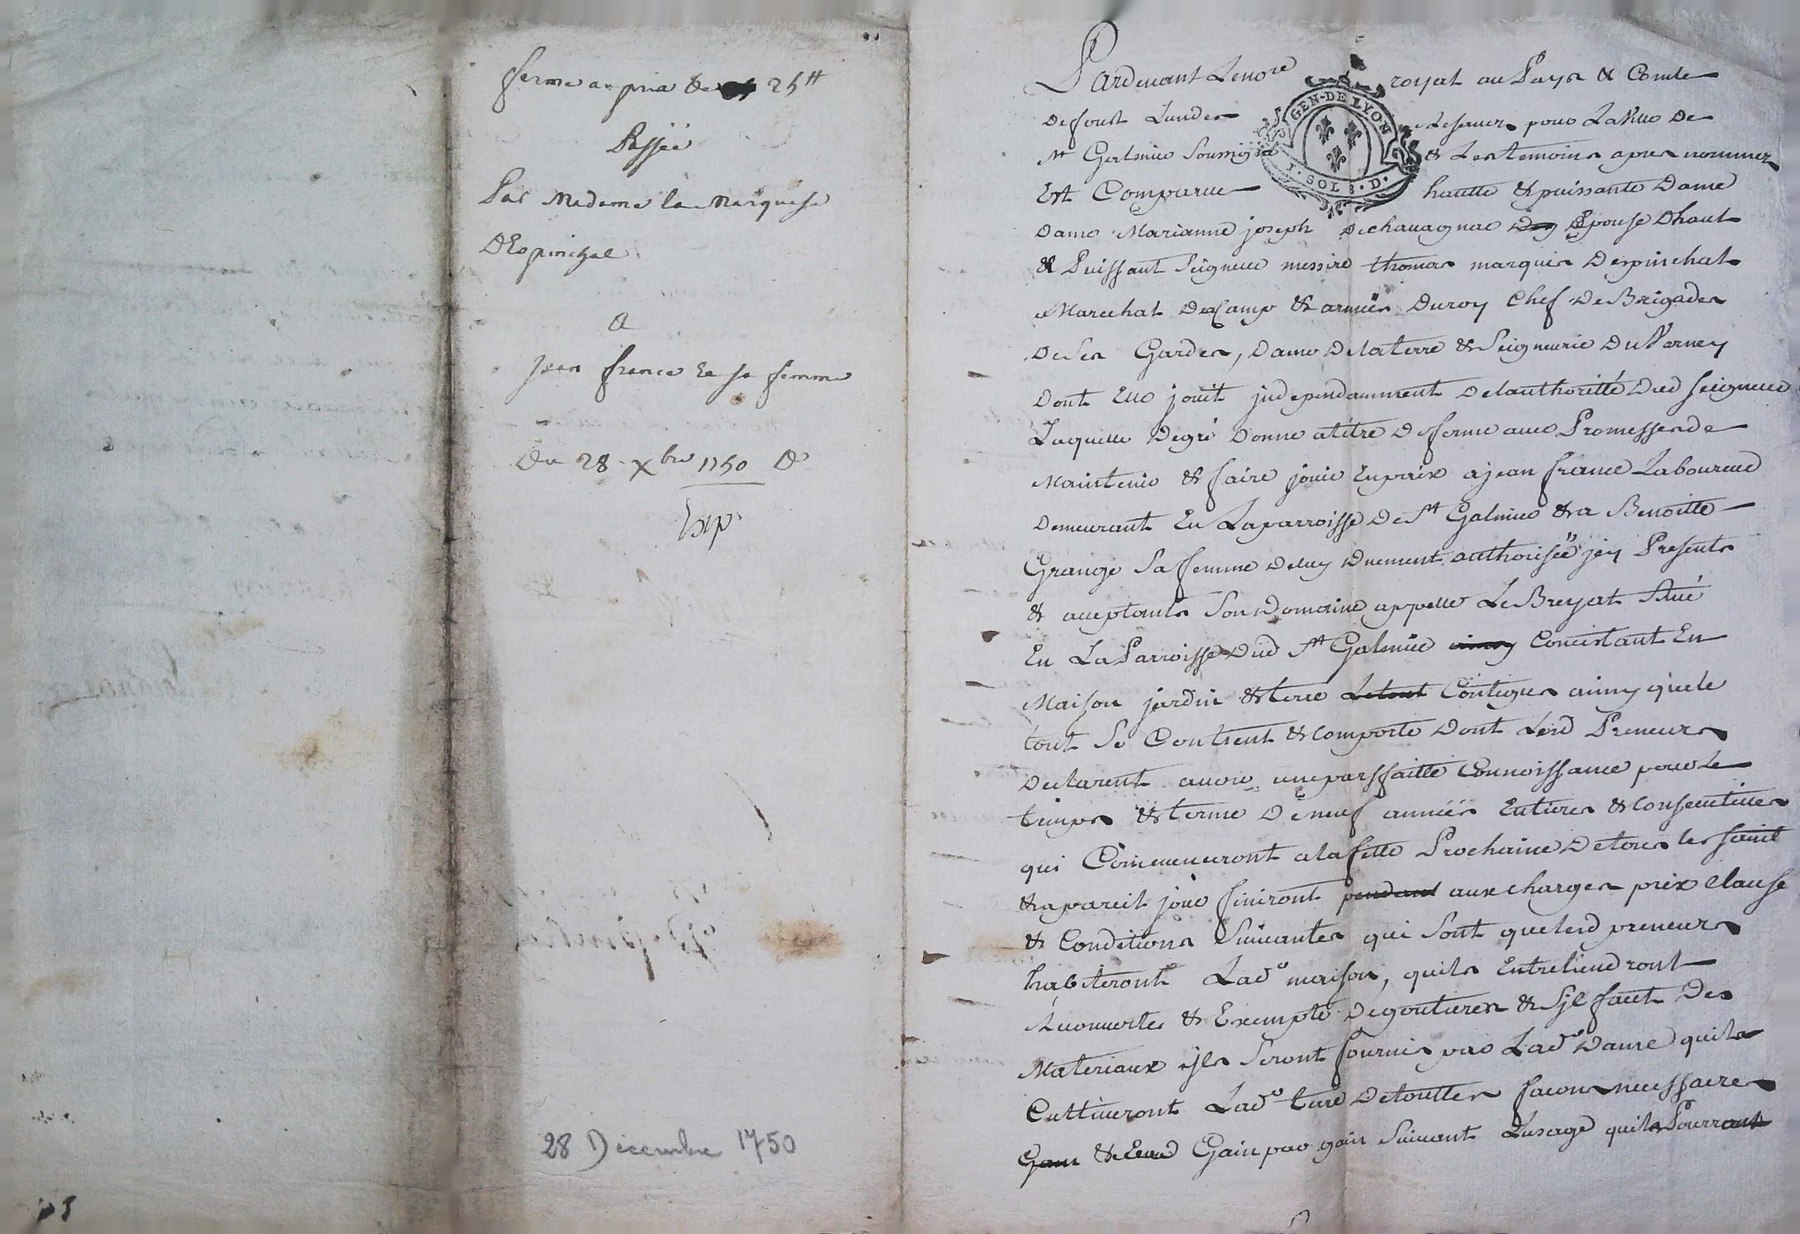 ferme au prix de 25ᵗᵗ
Passée
Par Madame la Marquise
DEspinchal
a
Jean france et sa femme
Du 28 Xbre 1750 D
Exp.
28 Décembre 1750
Pardevant Lenore royal au Pays & Comte
De foust Lunder pour La ville De
Sᵗ Galmier Soussigné & Les temoins apres nommer
Est Comparue haute & puissante Dame
Dame Marianne joseph Dechavagnac Epouse Dhaut
& Puissant Seigneur messire thomas marquis Despinchal
Marechal De Camp & armées Duroy Chef De Brigades
De Ses Gardes, Dame De la terre & Seigneurie Du Verney
Dont Elle jouit independamment De lauthorité Dud Seigneur
Laquelle De gré Donne a titre De ferme avec Promesse de
Maintenir & faire jouir En paix a jean france Laboureur
Demeurant En La parroisse De Sᵗ Galmier & a Benoitte
Grange Sa femme De luy Duement authorisée jcy Presents
& acceptants Son Domaine appellé Le Breyat Situé
En La Parroisse Dud Sᵗ Galmier Concistant En
Maison jardin & terre Le tout Contigues ainsy que le
tout Se Contient & comporte Dont Lesd Preneurs
Declarent avoir une parffaitte Connoissance pour Le
temps & terme De neuf années Entieres & consecutives
qui Commenceront a la fette Prochaine De tous les Saint
& a pareil jour finiront pendant aux charges prix clause
& Conditions Suivantes qui Sont que lesd preneurs
habiteront Ladᵉ maison, quils Entretiendront
Recouverte & Exempte De goutieres & Sjl faut Des
Materiaux jls Seront fournis par Ladᵉ Dame quils
Cultiveront Ladᵉ terre De touttes facons necessaires
Gain par gain Suivant Lusage quils Pourront